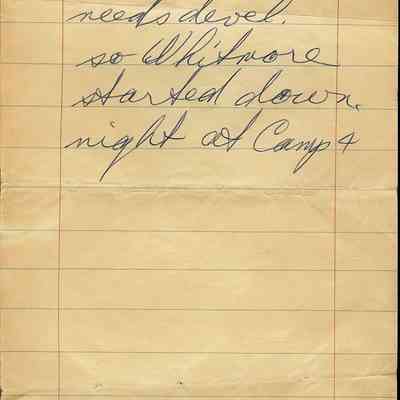 needs devel.
so Whitmore
started down.
night at Camp 4